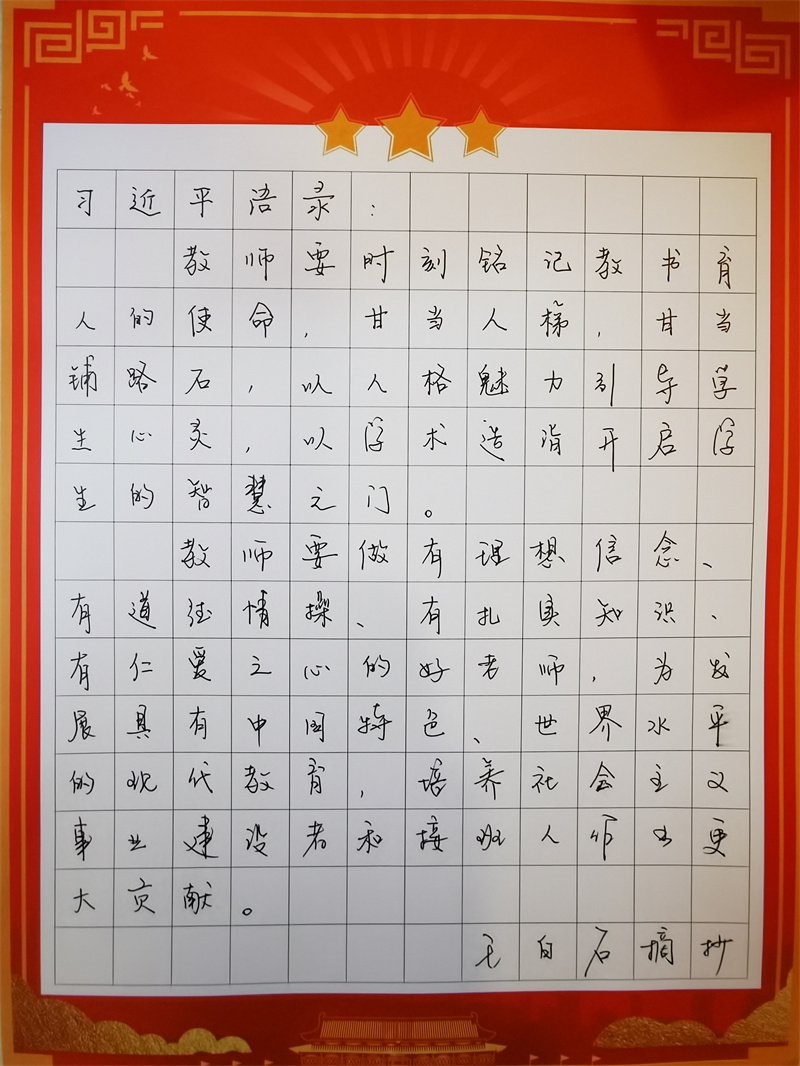 习近平语录:
教师要时刻铭记教书育
人的使命,甘当人梯,甘当
铺路石,以人格魅力引导学
生心灵,以学术造诣开启学
生的智慧之门。
教师要做有理想信念、
有道德情操、有扎实知识、
有仁爱之心的好老师,为发
展具有中国特色、世界水平
的现代教育,培养社会主义
事业建设者和接班人作出更
大贡献。
王白石摘抄